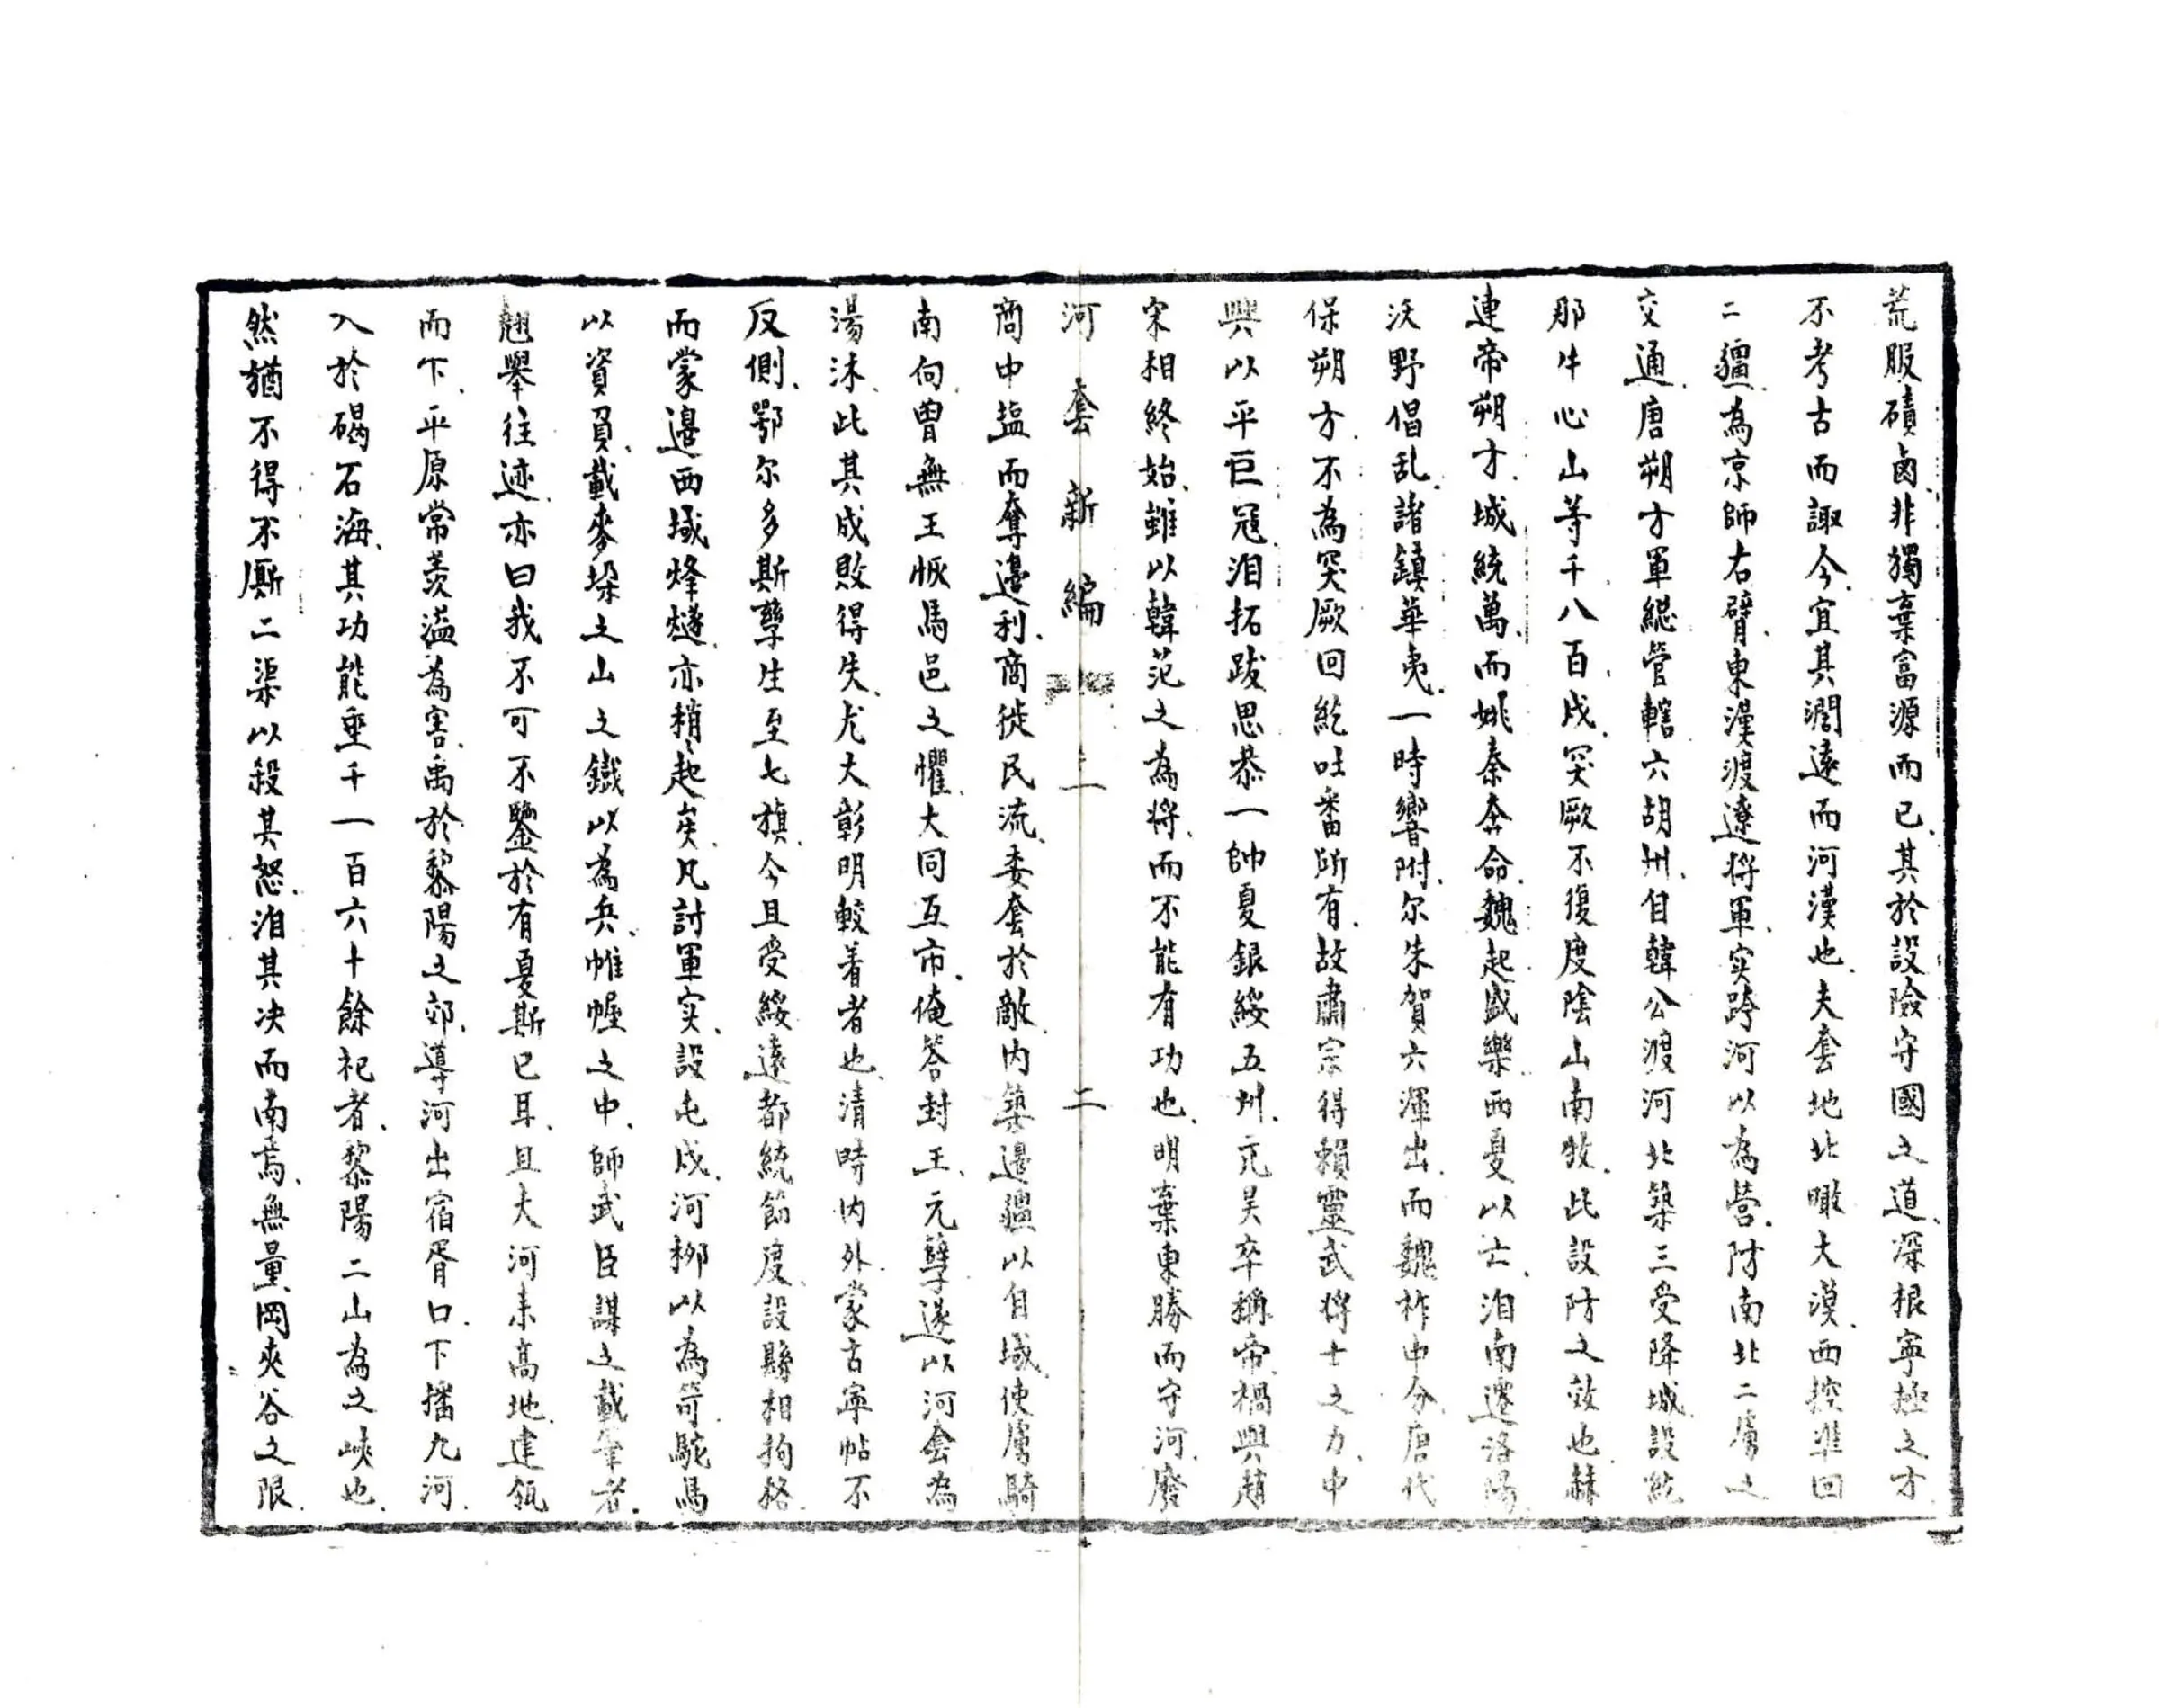 荒服磧鹵、非獨棄富源而已、其於設險守國之道、深根寧極之才
不考古而諏今、宜其濶遠而河漢也、夫套地北瞰大漠、西控準回
二疆、為京師右臂、東漢渡遼將軍、实跨河以為營、防南北二虜之
交通、唐朔方軍總管轄六胡州、自韓公渡河北築三受降城、設
那牛心山等千八百戍、突厥不復度陰山南牧、此設防之效也、赫
連帝朔方、城統萬、而姚秦奔命、魏起盛樂、西夏以亡、洎南遷洛陽
沃野倡乱、諸鎮華夷、一時響附、尔朱賀六渾出、而魏祚中分、唐代
保朔方、不為突厥回紇吐番所有、故肅宗得賴靈武將士之力、中
興以平巨冦、洎拓跋思恭一帥夏銀綏五州、元昊卒稱帝、禍與趙
宋相終始、雖以韓范之為將、而不能有功也、明棄東勝而守河、廢
河套新編 二
商中塩而奪邊利、商徙民流、委套於敵、内築邊疆以自域、使虜騎
南向、曾無王恢馬邑之懼、大同互市、俺答封王、元孽遂以河套為
湯沐、此其成敗得失、尤大彰明較著者也、清時内外蒙古寧帖不
反側、鄂尔多斯孽生至七旗、今且受綏遠都統節度、設縣相拘格、
而蒙邊西域烽燧、亦稍稍起矣、凡討軍实、設屯戍、河柳以為笴、駝馬
以資負、載麥垛之山之鐵以為兵、帷幄之中、師武臣謀之載筆者、
翹舉往迹、亦曰我不可不鑒於有夏斯已耳、且大河来高地、建瓴
而下、平原常羨溢為害、禹於黎陽之郊、導河出宿胥口、下播九河、
入於碣石海、其功能垂千一百六十餘祀者、黎陽二山為之峽也、
然猶不得不厮二渠以殺其怒、洎其决而南焉、無量岡夾谷之限、